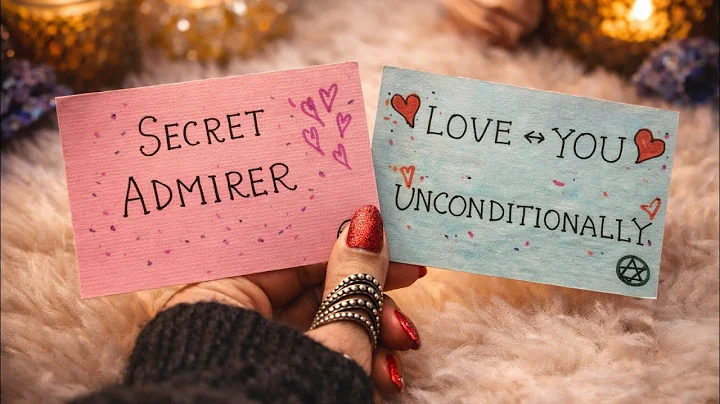 SECRET
ADMIRER
LOVE ↔ YOU
UNCONDITIONALLY